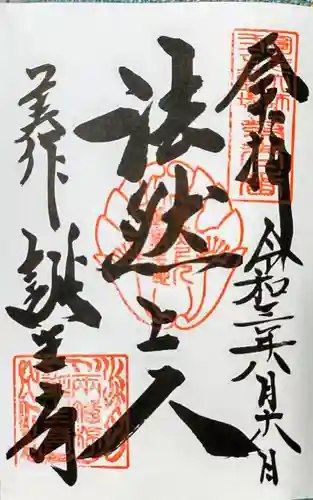 奉拝
令和二年八月十六日
法然上人
美作
誕生寺